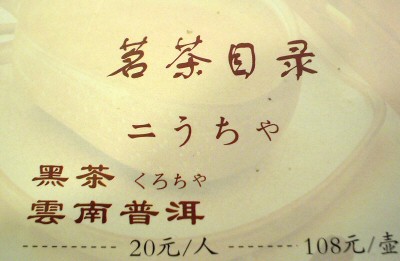 茗茶目录
ニうちゃ
黑茶 くろちゃ
雲南普洱
20元/人 108元/壺